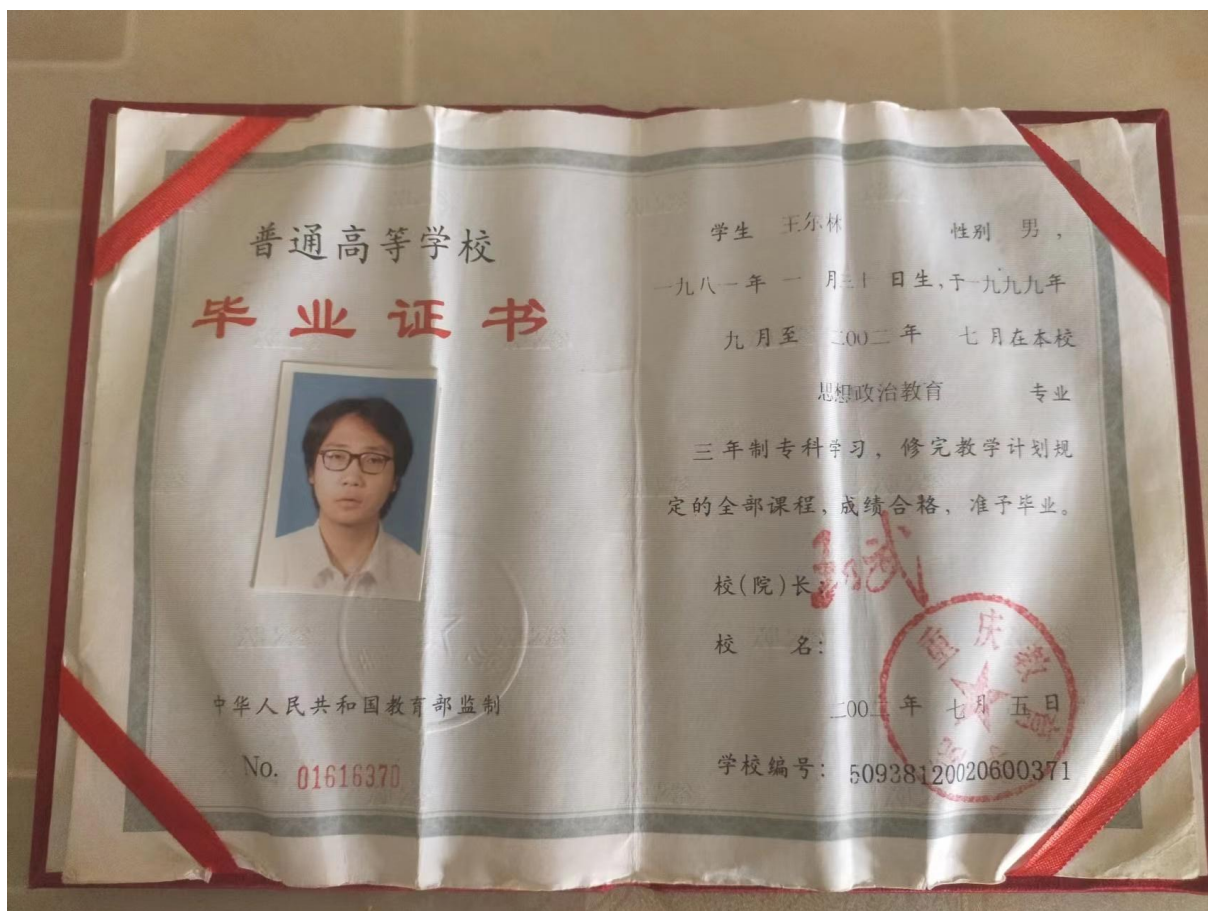 普通高等学校
毕业证书
中华人民共和国教育部监制
No. 01616370
学生 王尔林 性别 男，
一九八一年 一 月三十 日生，于一九九九年
九月至 二00二年 七月在本校
思想政治教育 专业
三年制专科学习，修完教学计划规
定的全部课程，成绩合格，准予毕业。
校(院)长：
校 名：
重庆教育学院
二00二年 七月 五日
学校编号：50938120020600371